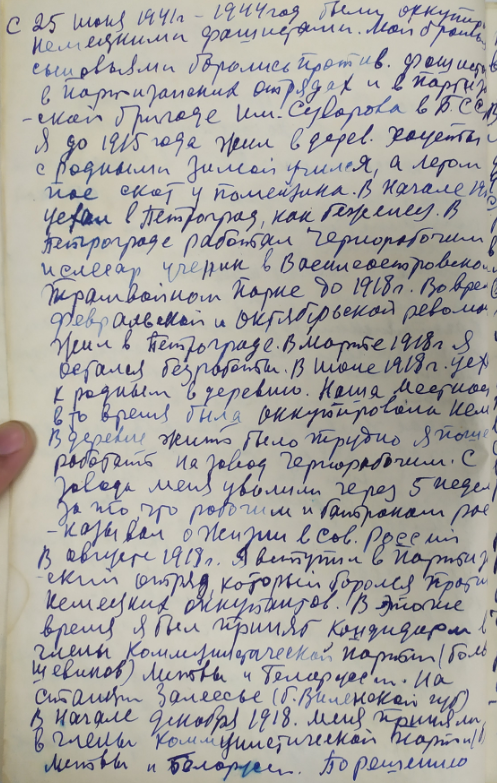 С 25 июня 1941г - 1944 год были оккупир
немецкими фашистами. Мои братья
сыновьями боролись против. фашист
в партизанских отрядах и в парти
-ской бригаде им. Суворова в БССР
Я до 1915 года жил в дерев.
с родными зимой учился, а летом
пас скот у помещика. В начале 19
уехал в Петроград, как беженец. В
Петрограде работал чернорабочим
и слесар ученик в Василеостровском
Трамвайном парке до 1918г. Во врем
февральской и октябрьской револю
жил в Петрограде. В Марте 1918г я
остался безработн. В июне 1918г. уех
к родным в деревню. Наша местнос
в то время была оккупирована нем
В деревне жить было трудно я поше
работать на завод чернорабочим. С
завода меня уволили через 5 недел
за то что рабочим и батракам рас
-казывал о жизни в Сов. России
В августе 1918г. я вступил в парти
-ский отряд, который боролся проти
немецких оккупантов. В это же
время я был принят кандидатом в
члены Коммунистической партии (боль
шевиков) Литвы и Белоруссии. На
станции Залесье (б. Виленской губ)
В начале декабря 1918. меня приняли
в члены Коммунистической партии
Литвы и Белорусси. По решению